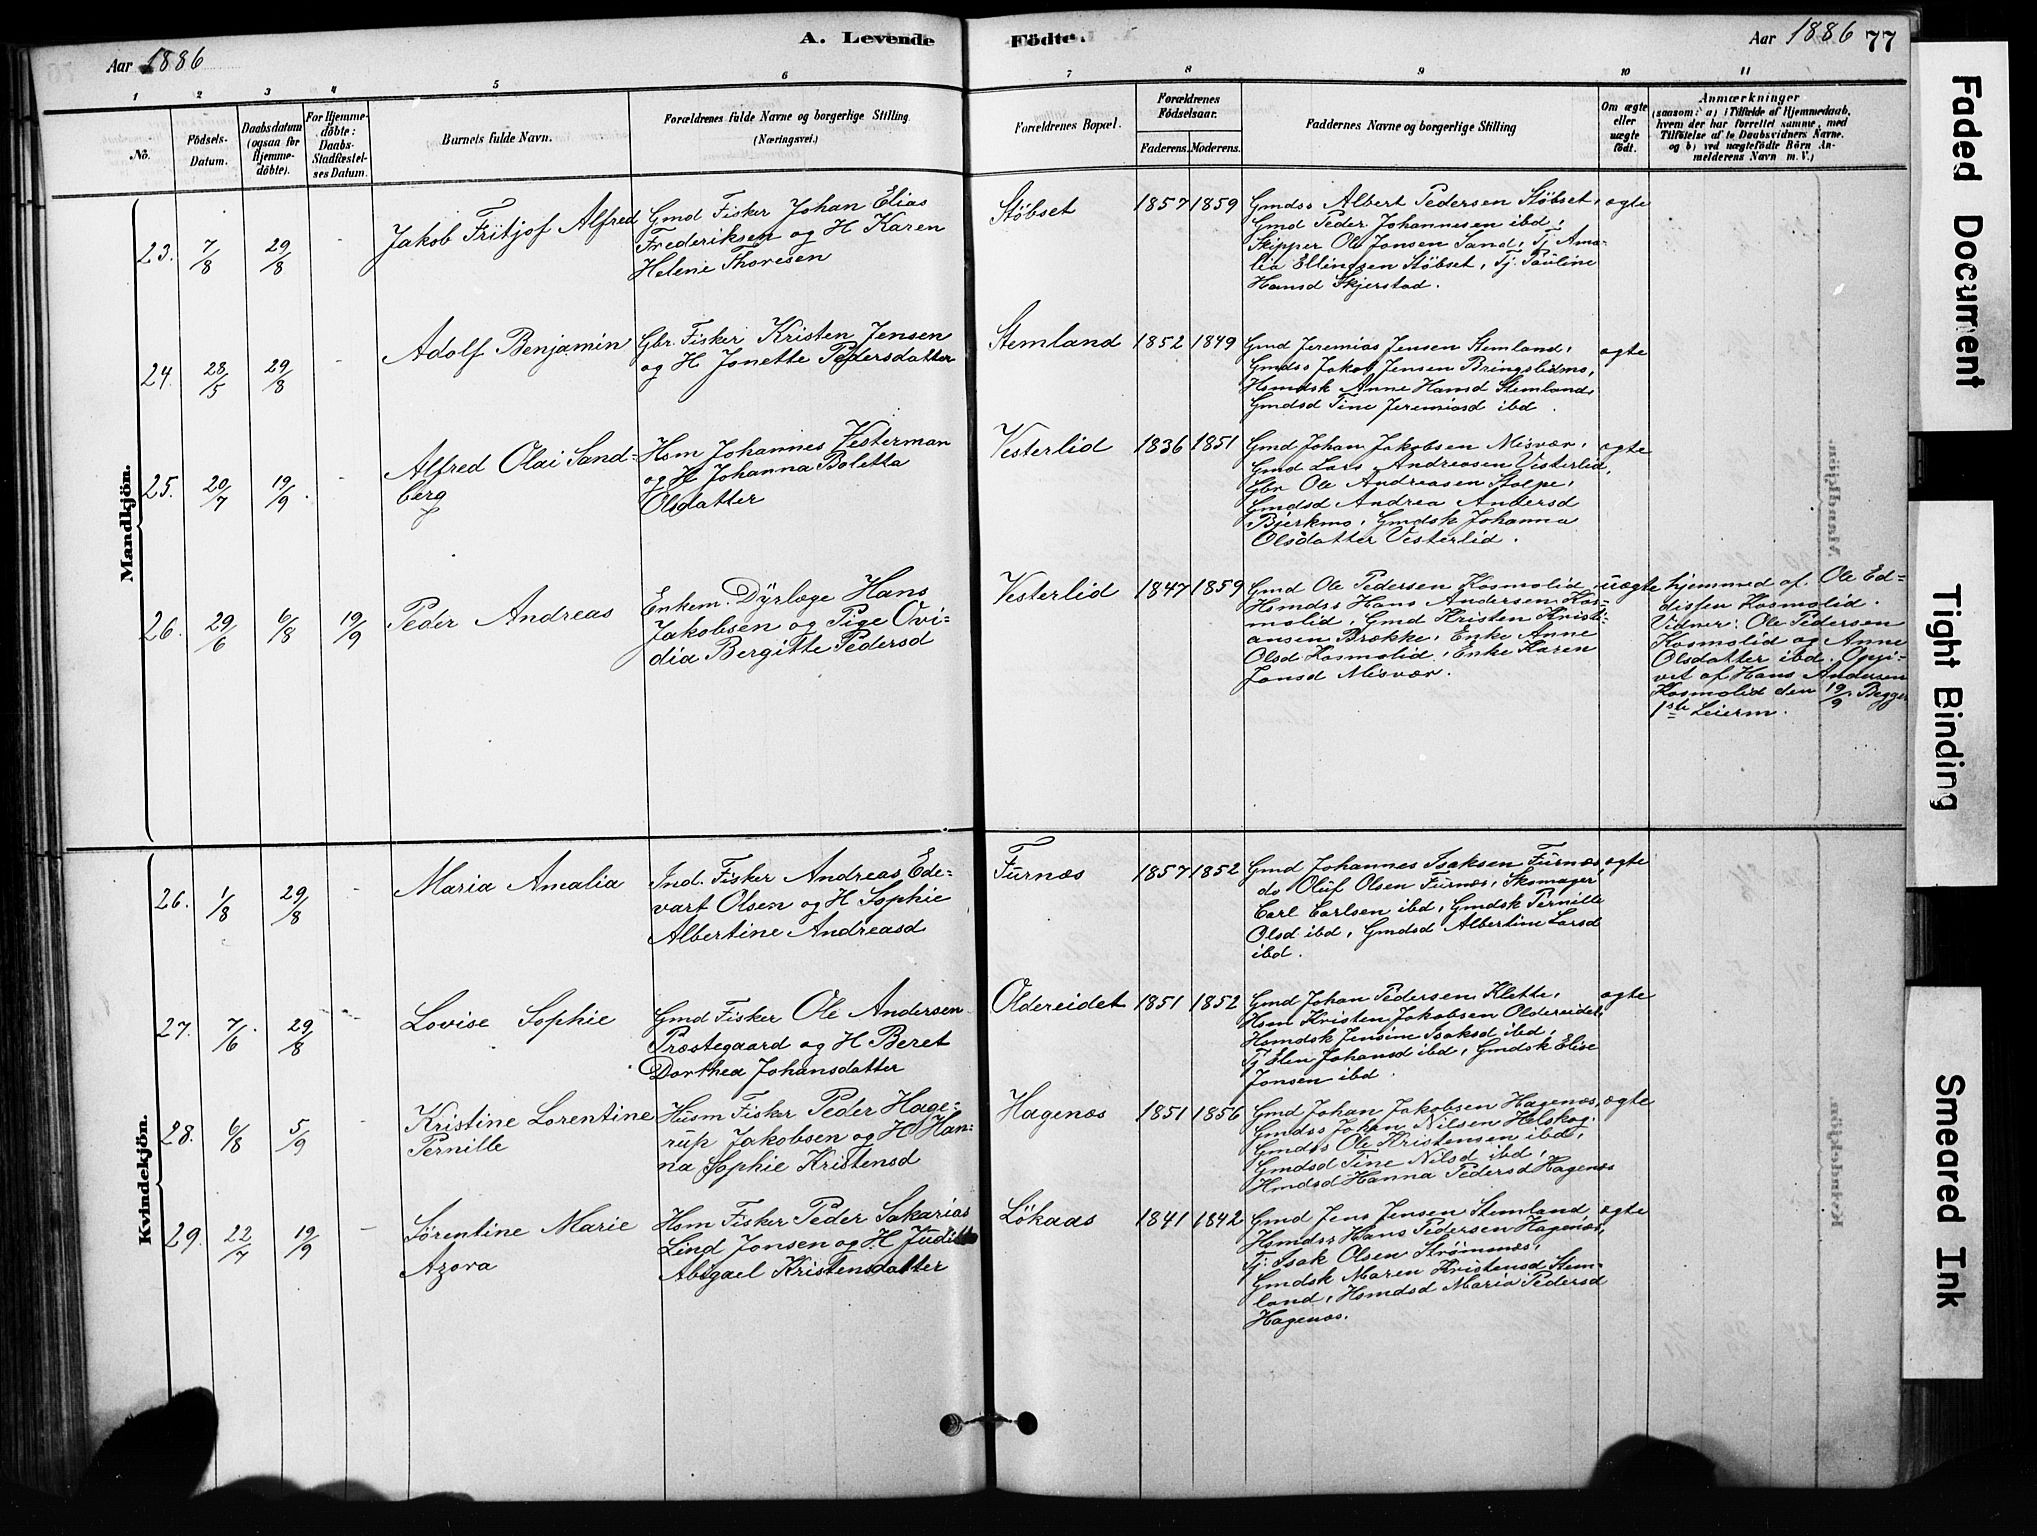 Aar 1886
A. Levende
Födte.
Aar 1886
77
1
2
3
4
5
6
7
8
9
10
11
No.
Födsels-
Datum.
Daabsdatum
(ogsaa for
Hjemme-
döbte).
For Hjemme-
döbte:
Daabs-
Stadfæstel-
ses Datum.
Barnets fulde Navn.
Forældrenes fulde Navne og borgerlige Stilling
(Næringsvei.)
Forældrenes Bopæl.
Forældrenes
Födselsaar.
Faderens.
Moderens.
Faddernes Navne og borgerlige Stilling
Om ægte
eller
uægte
födt.
Anmærkninger
(saasom: a) i Tilfælde af Hjemmedaab,
hvem der har forrettet samme, med
Tilföielse af to Daabsvidners Navne.
og b) ved uægtefödte Börn An-
melderens Navn m. V.)
Mandkjön.
23.
7/8
29/8
Jakob Fritjof Alfred
Gmd Fisker Johan Elias
Frederiksen og H Karen
Helene Thoresen
Støbset
1857
1859
Gmdss Albert Pedersen Støbset,
Gmd Peder Johannesen ibd,
Skipper Ole Jonsen Sand, Tj Ama-
lia Ellingsen Støbset, Tj. Pauline
Hansd Skjerstad.
ægte
24.
28/5
29/8
Adolf Benjamin
Gbr Fisker Kristen Jensen
og H Jonette Pedersdatter
Stemland
1852
1849
Gmd Jeremias Jensen Stemland,
Gmdss Jakob Jensen Bringslidmo,
Hsmdsk Anne Hansd Stemland,
Gmdsd Tine Jeremiasd ibd.
ægte
25.
20/7
19/9
Alfred Olai Sand-
berg
Hsm Johannes Vesterman
og H Johanna Boletta
Olsdatter
Vesterlid
1836
1851
Gmd Johan Jakobsen Misvær,
Gmd Lars Andreasen Vesterlid,
Gbr Ole Andreasen Stolpe,
Gmdsd Andrea Andersd
Bjerkmo, Gmdsk Johanna
Olsdatter Vesterlid.
ægte
26.
29/6
6/8
19/9
Peder Andreas
Enkem. Dyrlæge Hans
Jakobsen og Pige Ovi-
dia Bergitte Pedersd
Vesterlid
1847
1859
Gmd Ole Pedersen Kosmolid,
Hsmdss Hans Andersen Kos-
molid, Gmd Kristen Kristi-
ansen Brække, Enke Anne
Olsd Kosmolid, Enke Karen
Jonsd Misvær.
uægte
hjemmed af. Ole Ed-
disfen Kosmolid.
Vidner: Ole Pedersen
Kosmolid og Anne
Olsdatter ibd. Opgi-
vet af Hans Andersen
Kosmolid den 19/9. Begges
1ste Leierm.
Kvindekjön.
26.
1/8
29/8
Maria Amalia
Ind. Fisker Andreas Ede-
vart Olsen og H Sophie
Albertine Andreasd
Furnæs
1857
1852
Gmd Johannes Isaksen Furnæs
do Oluf Olsen Furnæs, Skomager
Carl Carlsen ibd, Gmdsk Pernille
Olsd ibd, Gmdsd Albertine Larsd
ibd.
ægte
27.
7/6
29/8
Lovise Sophie
Gmd Fisker Ole Andersen
Præstegaard og H Beret
Dorthea Johansdatter
Oldereidet
1851
1852
Gmd Johan Pedersen Klette,
Hsm Kristen Jakobsen Oldereidet,
Hsmdsk Jensine Isaksd ibd,
Tj Elen Johansd ibd, Gmdsk Elise
Jonsen ibd.
ægte
28.
6/8
5/9
Kristine Lorentine
Pernille
Husm Fisker Peder Hage-
rup Jakobsen og H Han-
na Sophie Kristensd
Hagenæs
1851
1856
Gmd Johan Jakobsen Hagenæs,
Gmdss Johan Nilsen Helskog,
Gmdss Ole Kristensen ibd,
Gmdsd Tine Nilsd ibd,
Hmdsd Hanna Pedersd Hagenæs
ægte
29.
22/7
19/9
Sørentine Marie
Azora
Hsm Fisker Peder Sakarias
Lind Jonsen og H. Judith
Abigael Kristensdatter
Løkaas
1841
1842
Gmd Jens Jensen Stemland,
Hsmdss Hans Pedersen Hagenæs,
Tj. Isak Olsen Strømsnæs,
Gmdsk Maren Kristensd Stem-
land, Hsmdsd Maria Pedersd
Hagenæs.
ægte
Faded Document
Tight Binding
Smeared Ink